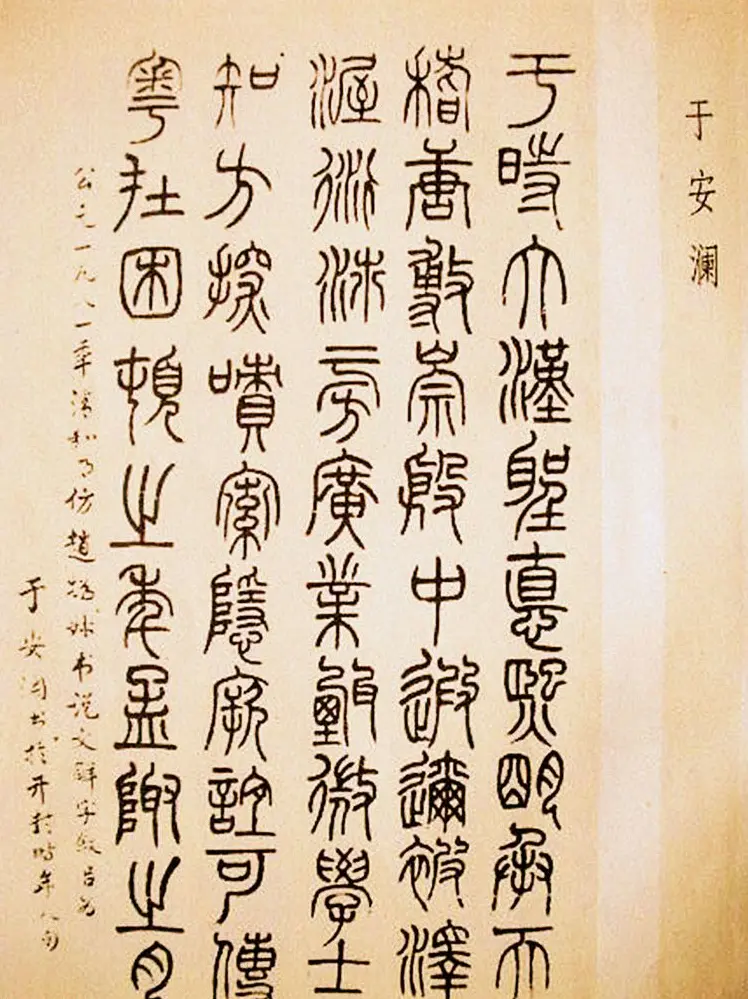 于安澜
于時大漢聖悳熙明承天
稽唐敷崇殷中遐邇被澤
渥衍沛滂廣業甄微學士
知方探嘖索隱厥誼可傳
粵在困頓之年孟陬之月
公元一九八一年清和月仿趙撝叔书说文解字叙
于安澜书於开封时年八旬